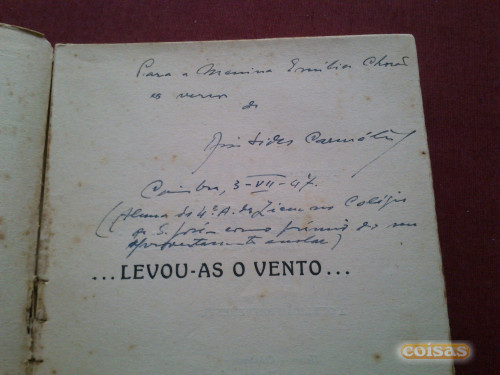 Para a Menina Emília
os versos
de
Coimbra, 3-VII-47.
(Aluna do 4º A. do Liceu no Colégio
de S. José como prémio do seu
aproveitamento escolar)
...LEVOU-AS O VENTO...
coisas